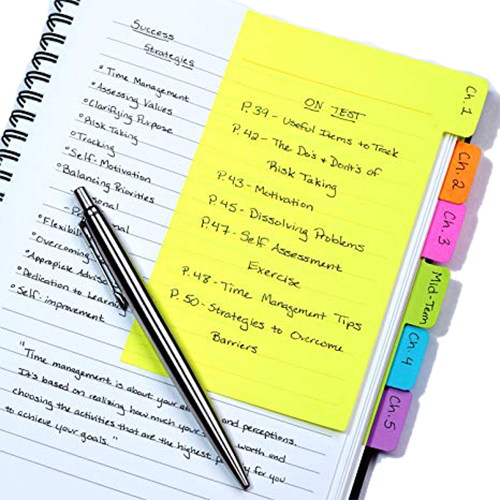 Success
Strategies
° Time Management
° Assessing Values
° Clarifying Purpose
° Risk Taking
° Tracking
° Self-Motivation
° Balancing Priorities
° Flexibili
° Overcoming
° Appropiate Advise
° Dedication to Learning
° Self-improvement
"Time management is about your and perceptions.
It's based on realizing how much your worth and
choosing the activities that are the highest for you
to achieve your goals."
ON TEST
P.39 - Useful Items to Track
P.42 - The Do's & Dont's of
Risk Taking
P.43 - Motivation
P.45 - Dissolving Problems
P.47 - Self Assessment
Exercise
P.48 - Time Management Tips
P.50 - Strategies to Overcome
Barriers
Ch. 1
Ch. 2
Ch. 3
Mid-Term
Ch. 4
Ch. 5